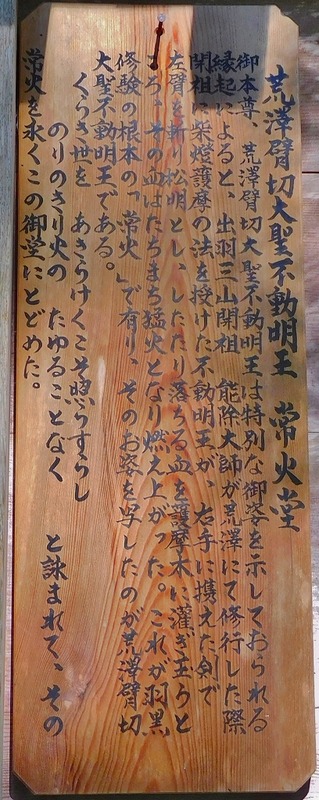 荒澤臂切大聖不動明王　常火堂
御本尊、荒澤臂切大聖不動明王は特別な御姿を示しておられる
縁起によると、出羽三山開祖　能除大師が荒澤にて修行した際
開祖に柴燈護摩の法を授けた不動明王が、右手に携えた剣で
左臂を斬り松明とし、したたり落ちる血を護摩木に灌ぎ立うと
ころ、その血はたちまち猛火となり燃え上がった。これが羽黒
修験の根本の「常火」で有り、そのお姿を写したのが荒澤臂切
大聖不動明王である。
くらき世を　あきらけくこそ照らすらし
のりのきり火の　たゆることなく　と詠まれて、その
常火を永くこの御堂にとどめた。